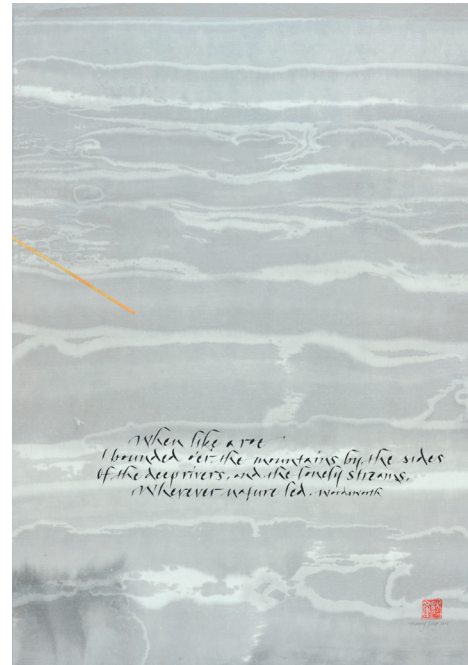 When like a roe
I bounded o'er the mountains, by the sides
Of the deep rivers, and the lonely streams,
Wherever nature led. Wordsworth